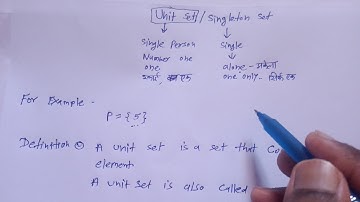 Unit Set / Singleton Set
Single Person Single
Number one alone - अकेला
one. one only - सिर्फ एक
इकाई, एक
For Example -
P = {5}
Definition A unit set is a set that Co
element
A unit set is also called